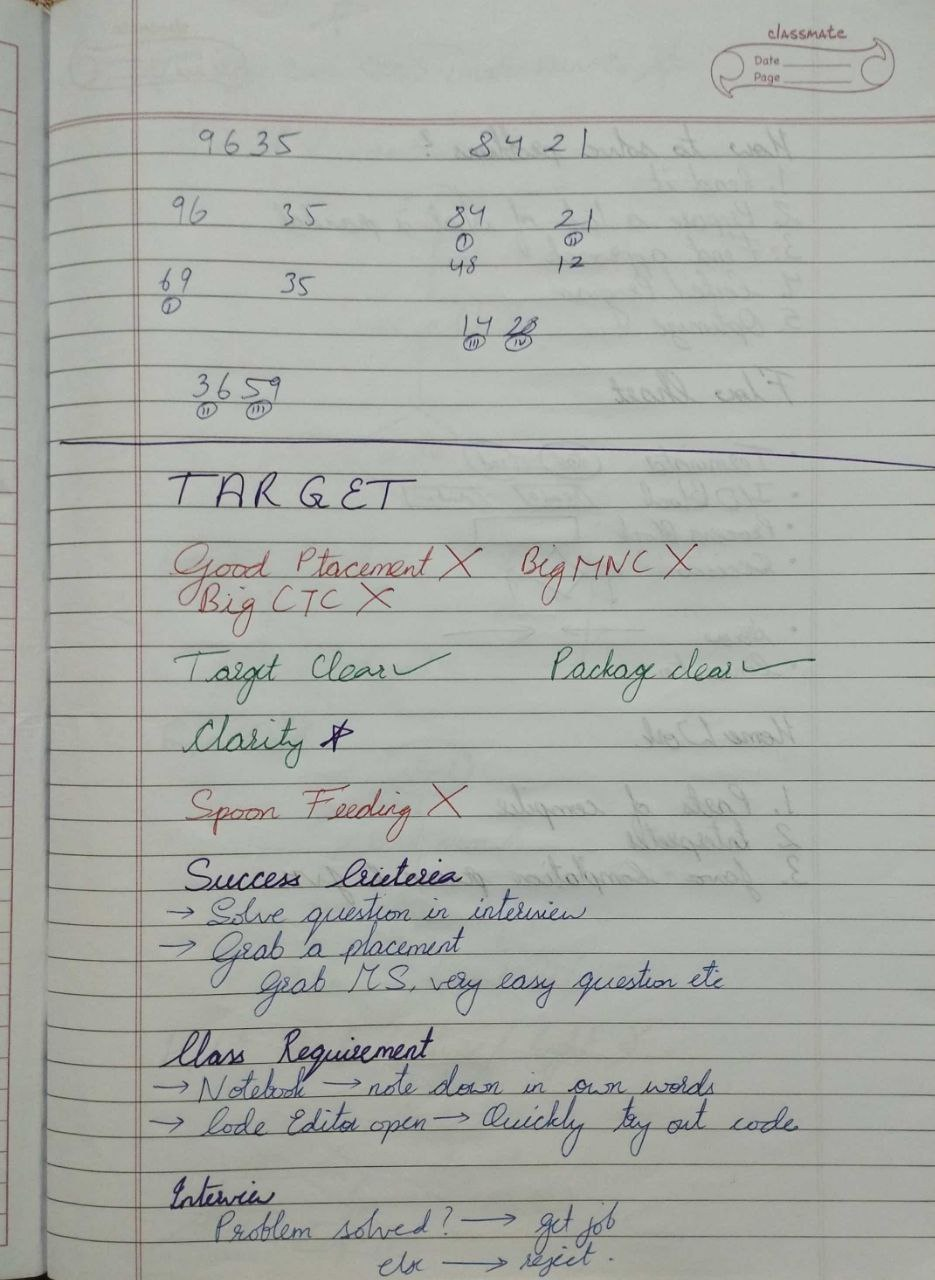 classmate
Date
Page
9635 8421
96 35 84 21
I II
69 35 48 12
I
14 28
III IV
36 59
II III
TARGET
Good Placement X Big MNC X
Big CTC X
Target Clear ✓ Package clear ✓
Clarity *
Spoon Feeding X
Success Criteria
→ Solve question in interview
→ Grab a placement
Grab MS, very easy question etc
Class Requirement
→ Notebook → note down in own words
→ Code Editor open → Quickly try out code
Interview
Problem solved? → get job
else → reject.